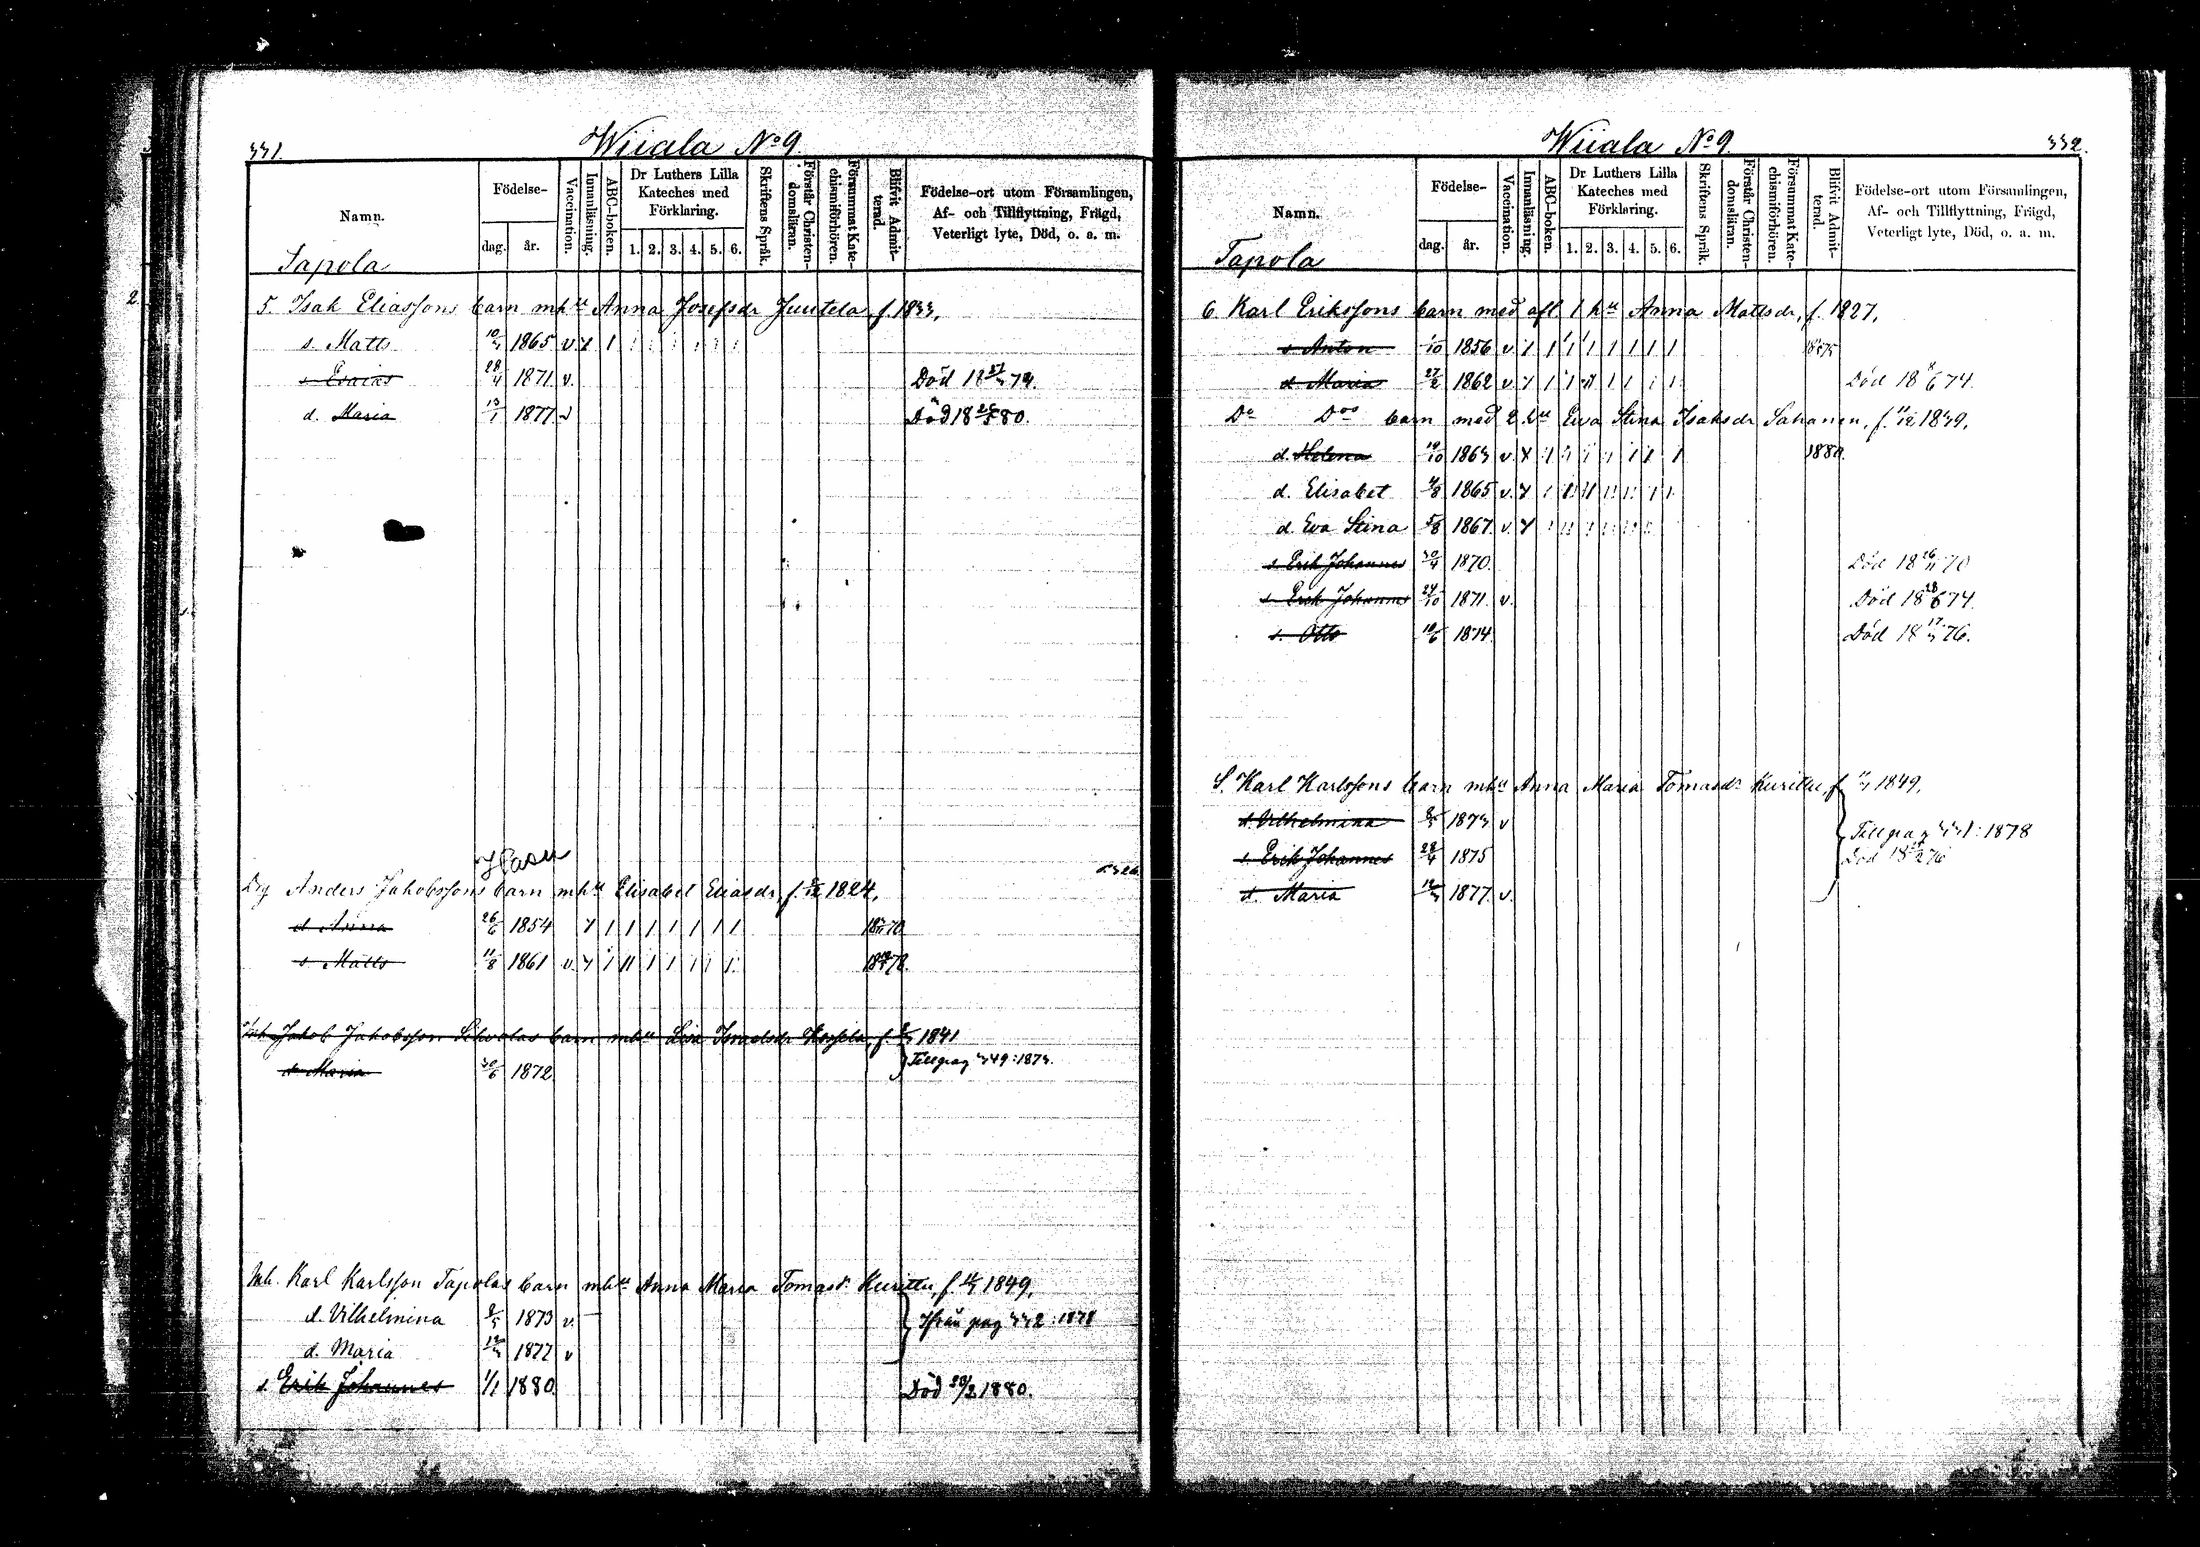 331.
Wiiala No 9.
Namn.
Födelse-
dag.
år.
Vaccination.
Innanläsning.
ABC-boken.
Dr Luthers Lilla Kateches med Förklaring.
1. 2. 3. 4. 5. 6.
Skriftens Språk.
Förstår Christen-domsläran.
Försummat Kate-chismiförhören.
Blifvit Admit-terad.
Födelse-ort utom Församlingen,
Af- och Tillflyttning, Frägd,
Veterligt lyte, Död, o. a. m.
Tapola
2
5. Isak Eliassons barn m hu Anna Josefsdr Juutela f. 1833,
s. Matts 10/3 1865 v.
s Esaias 28/4 1871 v. Död 18 74.
d. Maria 13/1 1877 v Död 18 80.
Hasu
Anders Jakobssons barn m hu Elisabet Eliasdr, f. 1824,
d Anna 26/6 1854 18 70
s. Matts 11/8 1861 v. 18 78
Jakob Jakobsson barn m hu Lisa f. 1841
d Maria 30/6 1872 Till pag 349:1873.
Inh. Karl Karlsson Tapolas barn m hu Anna Maria Tomasdr Kurittu, f. 1849,
d. Vilhelmina 2/5 1873 v. Ifrån pag 332:1878
d. Maria 12/3 1877 v
s. Erik Johannes 1/1 1880 Död 1880.
332.
Wiiala No 9
Namn.
Födelse-
dag.
år.
Vaccination.
Innanläsning.
ABC-boken.
Dr Luthers Lilla Kateches med Förklaring.
1. 2. 3. 4. 5. 6.
Skriftens Språk.
Förstår Christen-domsläran.
Försummat Kate-chismiförhören.
Blifvit Admit-terad.
Födelse-ort utom Församlingen,
Af- och Tillflyttning, Frägd,
Veterligt lyte, Död, o. a. m.
Tapola
6. Karl Erikssons barn med afl. 1 hu Anna Mattsdr, f. 1827,
s Anton 1856 v 18 75
d Maria 27/2 1862 v Död 18 74.
Do Do barn med 2 hu Eva Stina Isaksdr Sahanen, f. 11/12 1839,
d. Helena 19/10 1863 v. 1880.
d. Elisabet 1865 v.
d. Eva Stina 5/8 1867 v.
s Erik Johannes 30/4 1870. Död 18 26/11 70
s. Erik Johannes 24/10 1871 v. Död 18 28/6 74
s. Otto 10/6 1874 Död 18 17/3 76.
S. Karl Karlssons barn m hu Anna Maria Tomasdr Kurittu, f 1849,
d. Vilhelmina 2/5 1873 v Till pag 331:1878
s. Erik Johannes 28/4 1875 Död 18 76
d. Maria 12/3 1877 v.